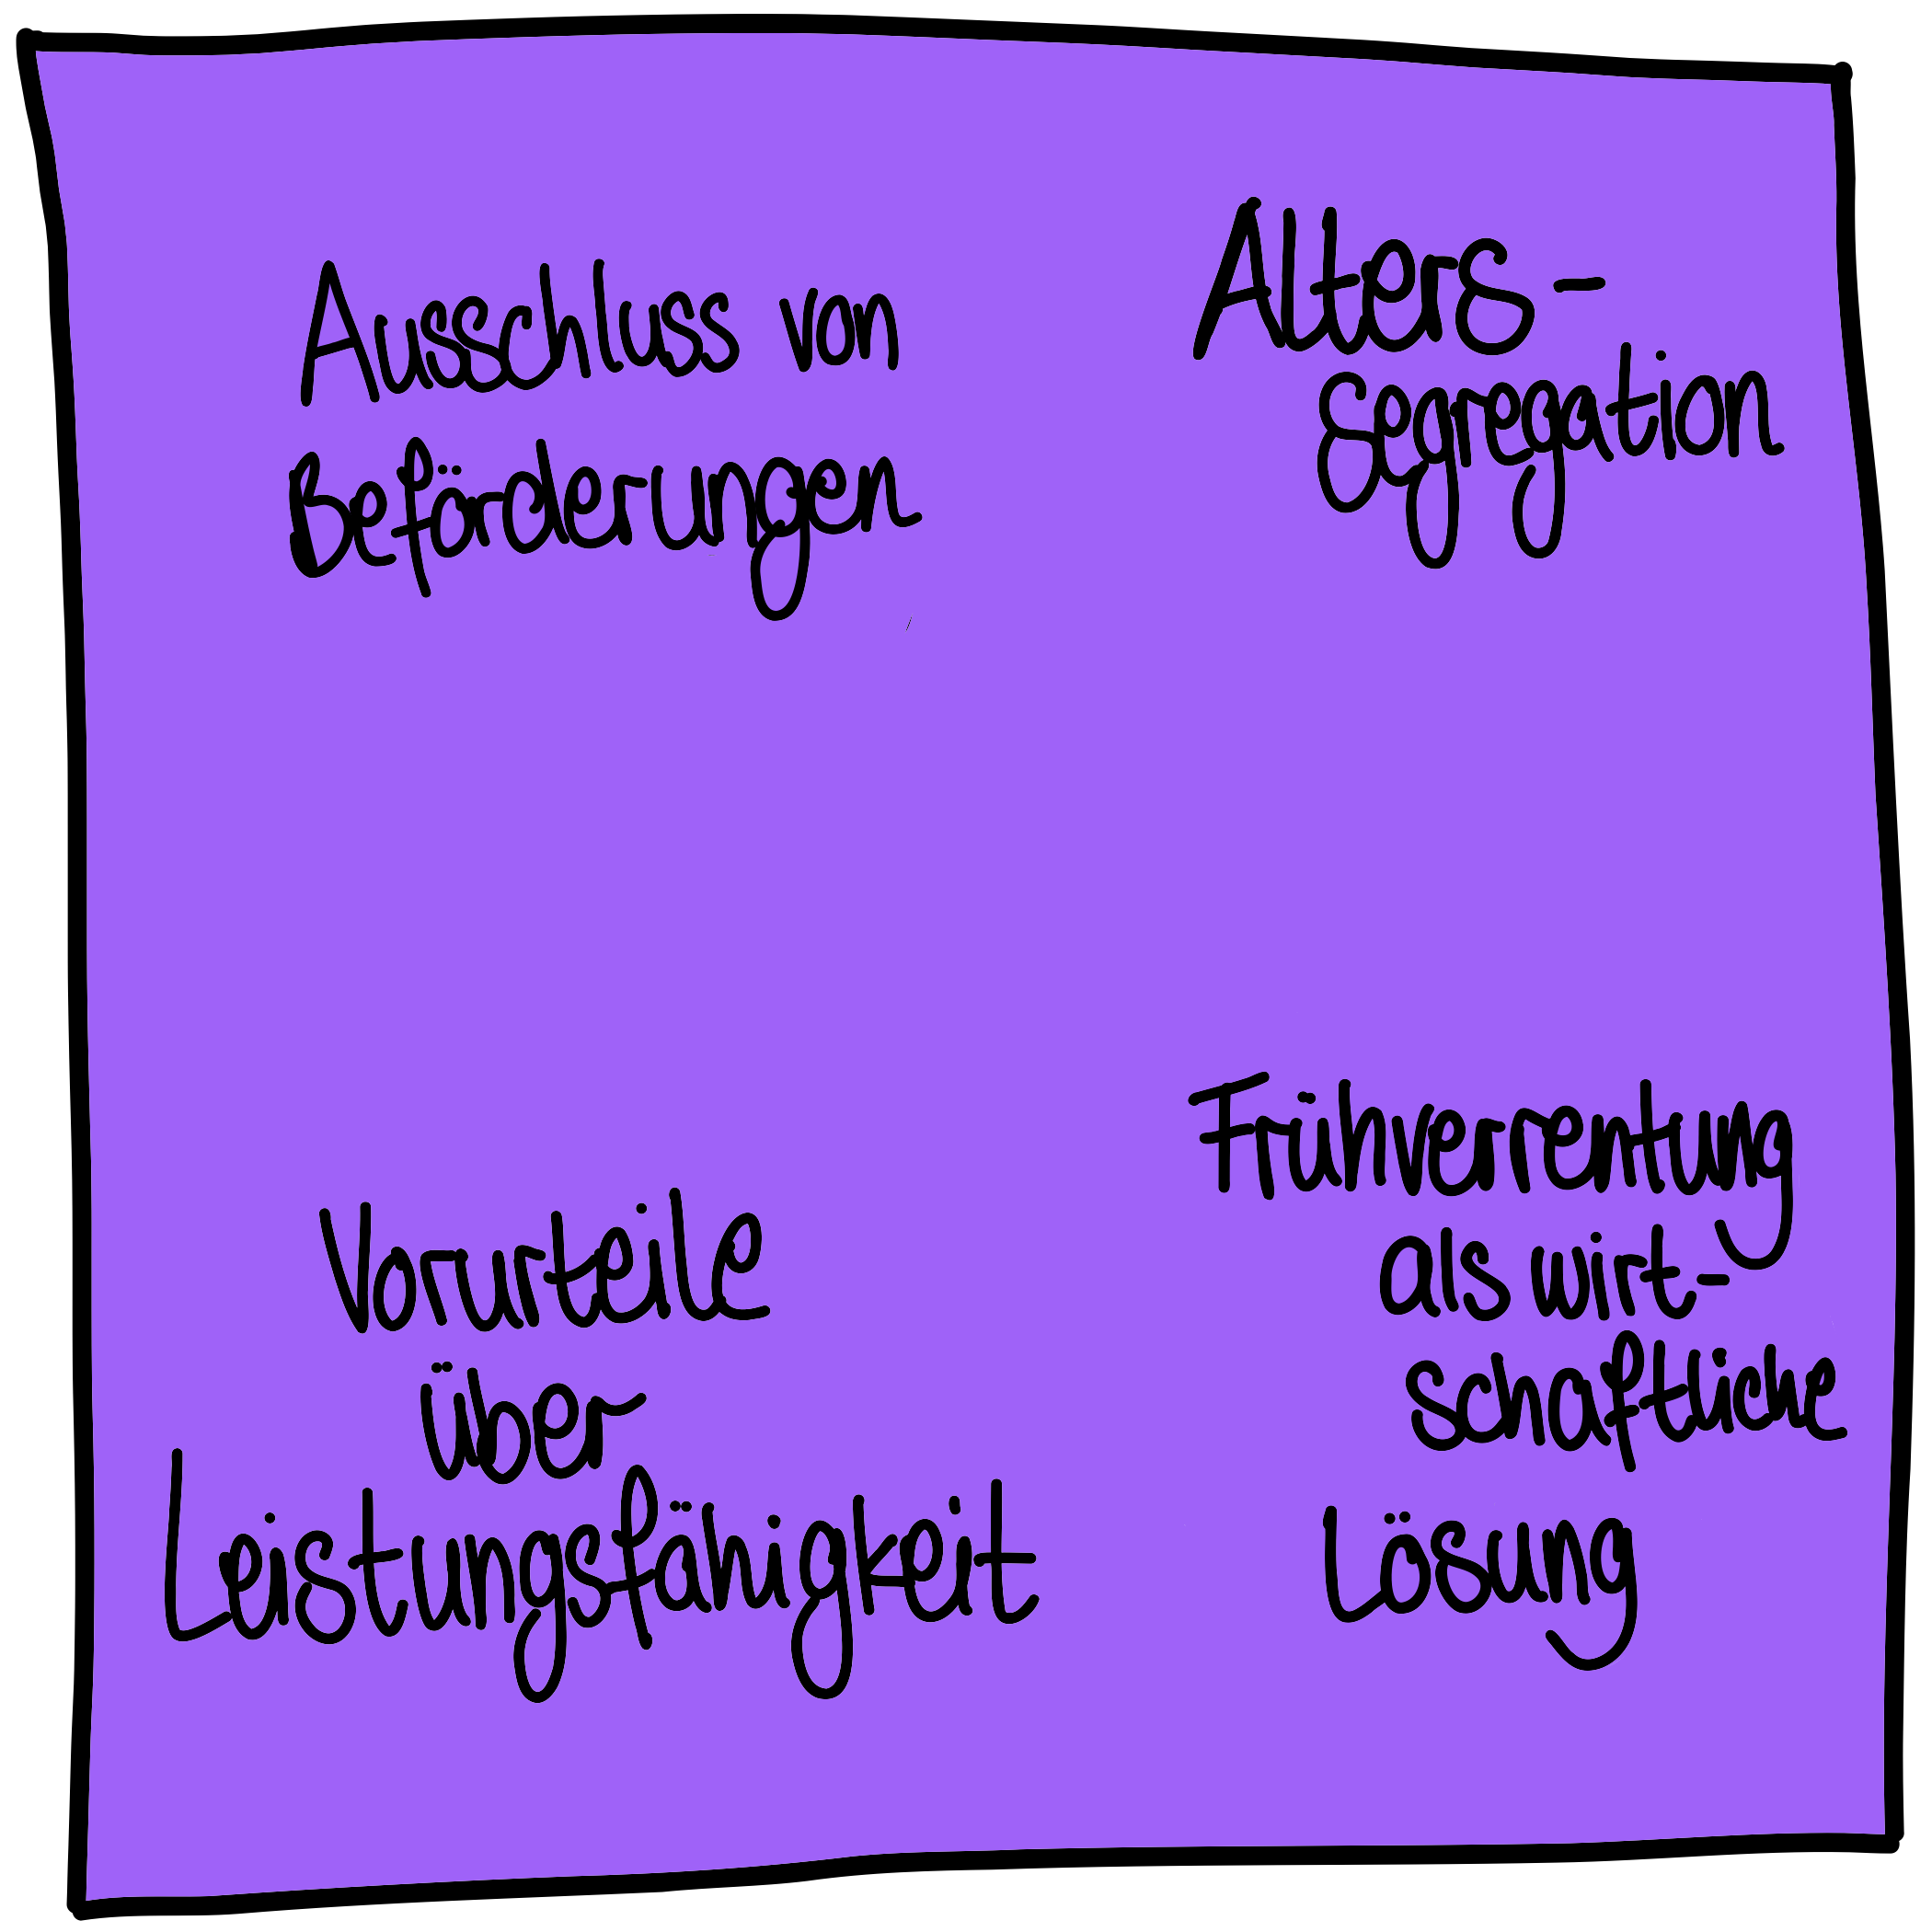 Ausschluss von
Beförderungen
Alters-
segregation
Vorurteile
über
Leistungsfähigkeit
Frühverrentung
als wirt-
schaftliche
Lösung